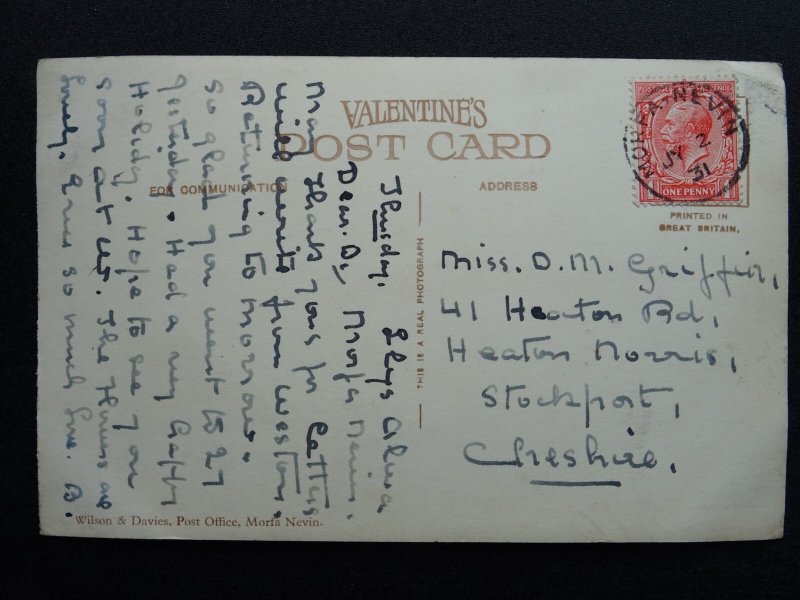 VALENTINE'S
POST CARD
FOR COMMUNICATION
ADDRESS
MORFA-NEVIN
JY 2
31
ONE PENNY
PRINTED IN
GREAT BRITAIN.
THIS IS A REAL PHOTOGRAPH
Thursday.
Dear. D, Morfa Nevin.
Many thanks yours for letter
will write from Weston.
Returning to morrow.
so glad you went to 27
yesterday. Had a very happy
Holiday. Hope to see you
soon at
lovely. so much love. B.
Miss. D. M. Griffin,
41 Heaton Rd,
Heaton Norris,
Stockport,
Cheshire.
Wilson & Davies, Post Office, Morfa Nevin.